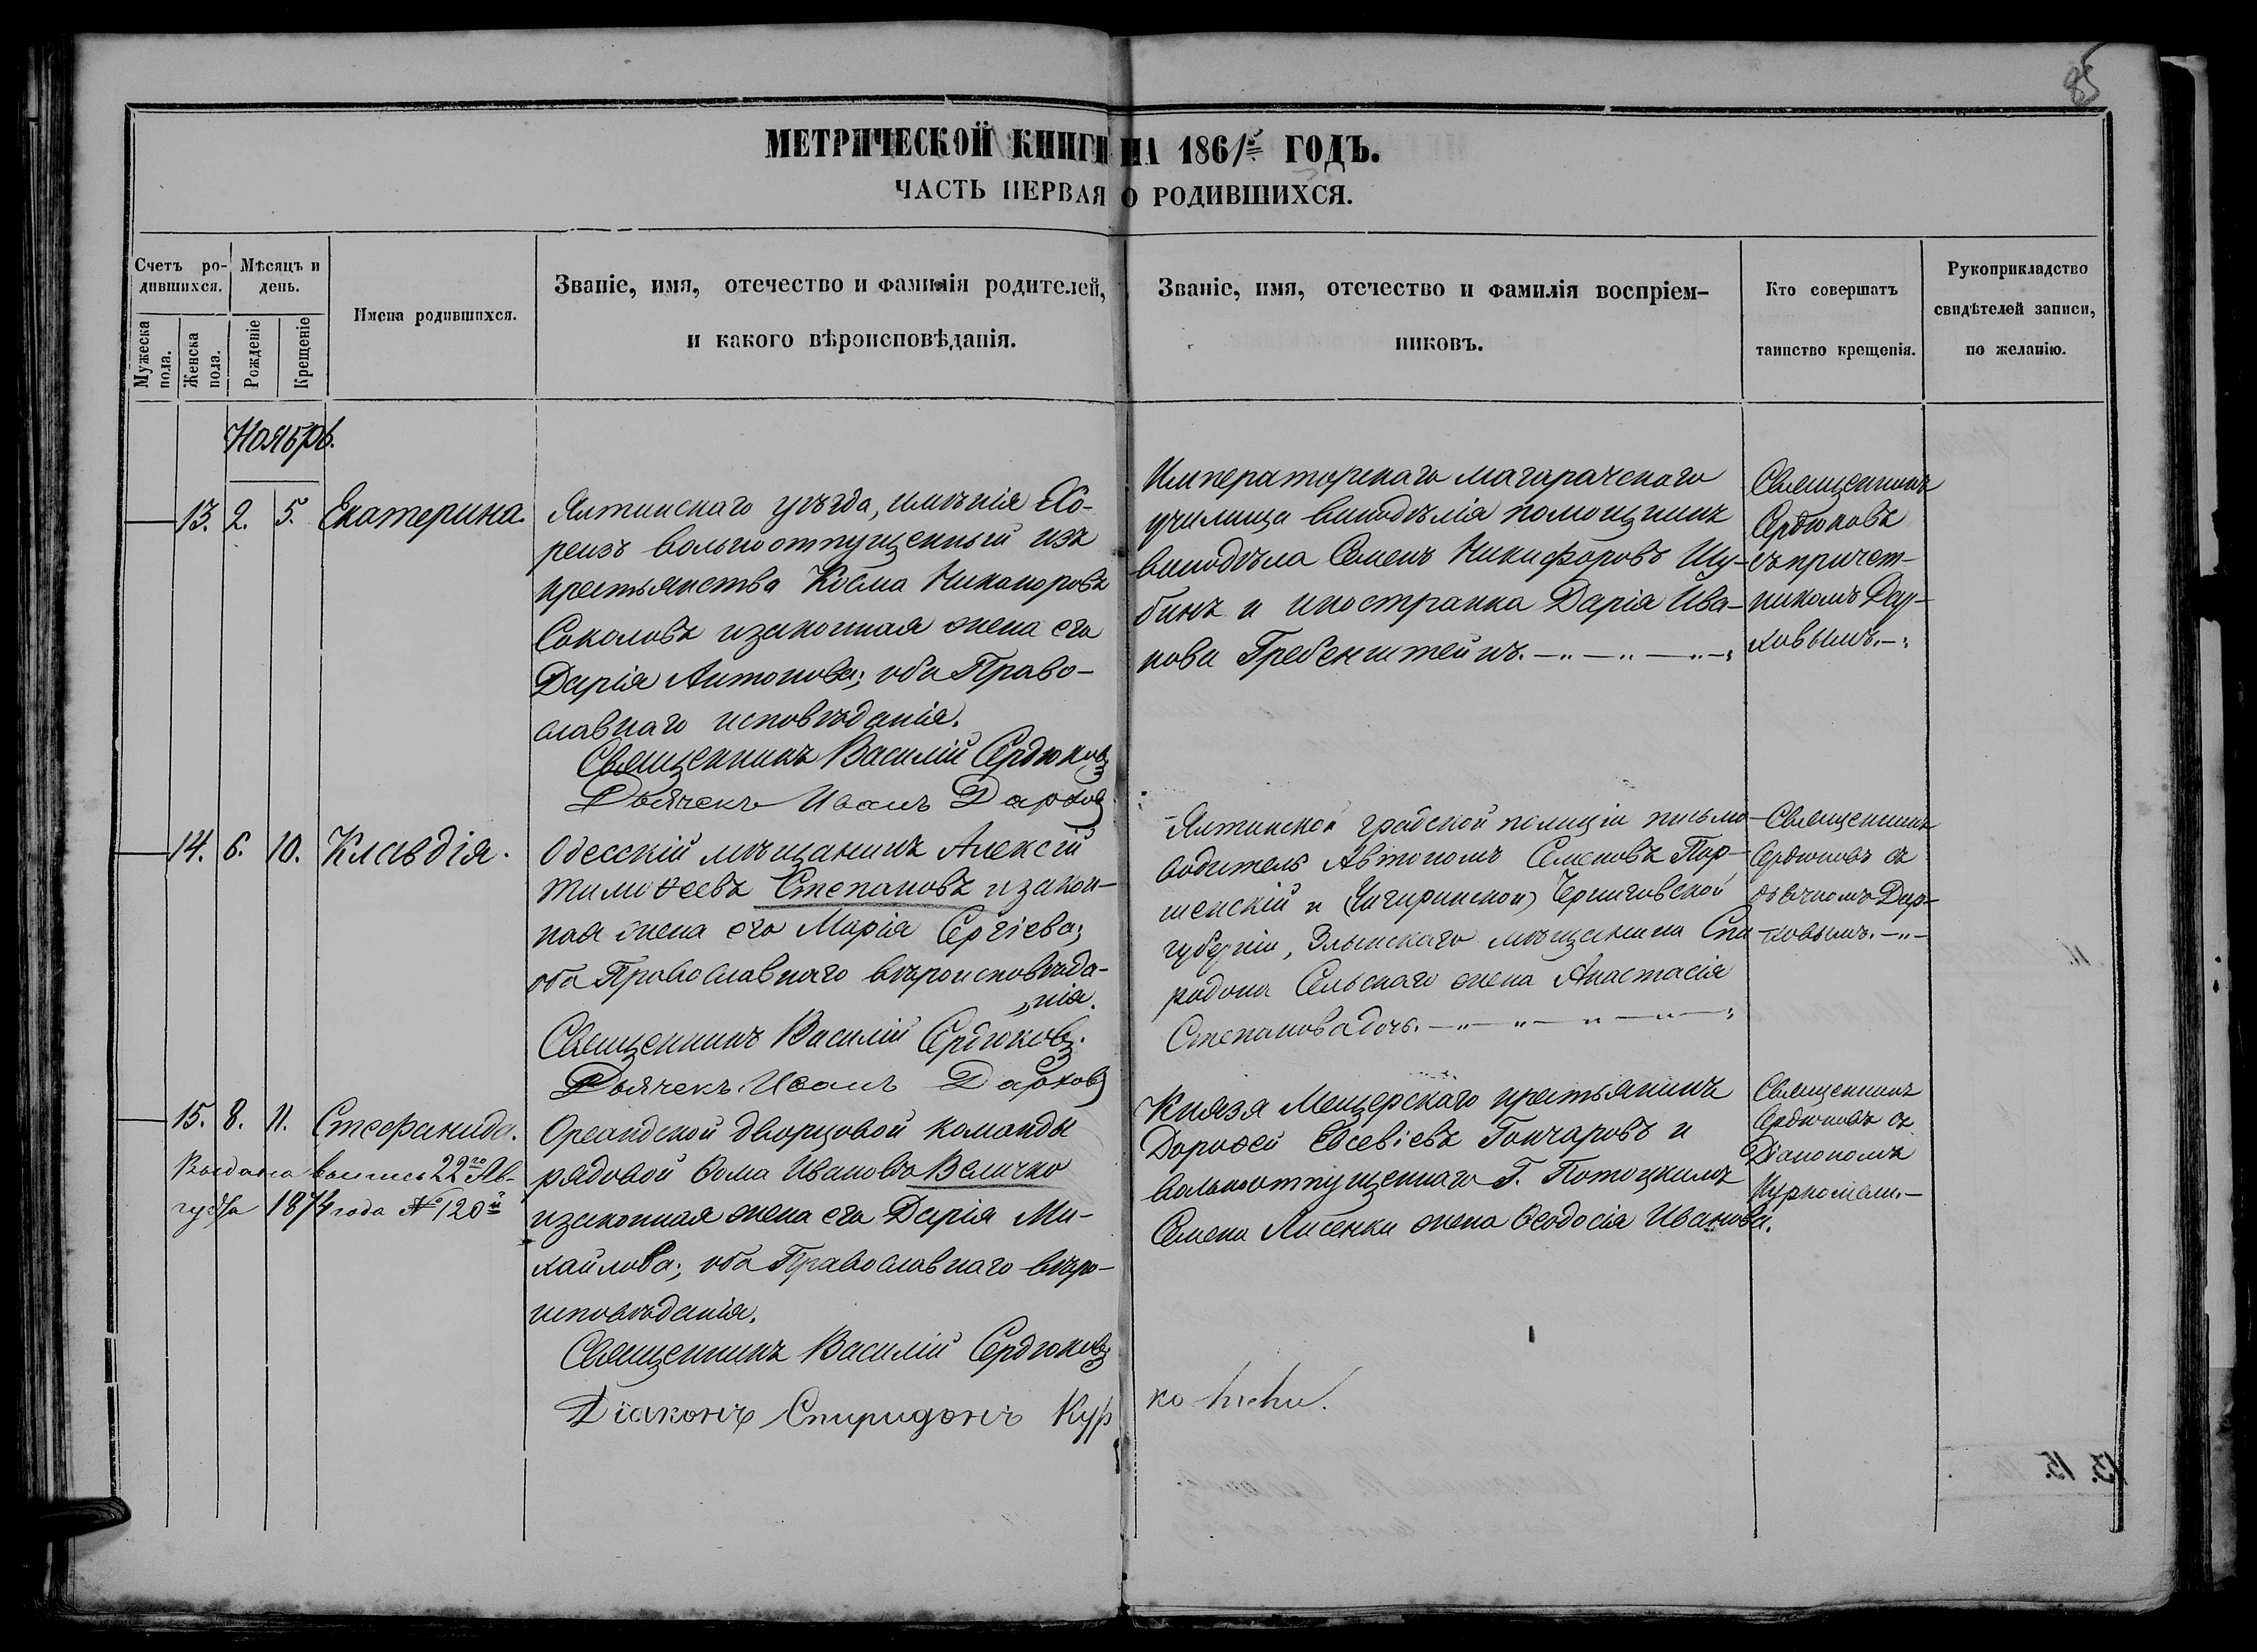 85
МЕТРИЧЕСКОЙ КНИГИ НА 1861 ГОДЪ.
ЧАСТЬ ПЕРВАЯ О РОДИВШИХСЯ.
Счетъ ро-
дившихся.
Мужеска
пола.
Женска
пола.
Мѣсяцъ и
день.
Рожденіе
Крещеніе
Имена родившихся.
Званіе, имя, отечество и фамилія родителей,
и какого вѣроисповѣданія.
Званіе, имя, отечество и фамилія воспріем-
никовъ.
Кто совершатъ
таинство крещенія.
Рукоприкладство
свидѣтелей записи,
по желанію.
Ноябрь.
13. 2. 5. Екатерина.
Ялтинскаго уѣзда, имѣнія Хо-
реизъ вольноотпущенный изъ
крестьянства Косма Никаноровъ
Соколовъ и законная жена его
Дарія Антонова; оба Право-
славнаго исповѣданія.
Священникъ Василій Сердюковъ
Дьячекъ Иванъ
Императорскаго магарачскаго
училища винодѣлія помощникъ
винодѣла Семенъ Никифоровъ Шу-
бинъ и иностранка Дарія Ива-
нова Гребенштейнъ.
Священникъ
Сердюковъ
съ причет-
никомъ
14. 6. 10. Клавдія.
Одесскій мѣщанинъ Алексій
Тимоѳеевъ Степановъ и закон-
ная жена его Марія Сергіева;
оба Православнаго вѣроисповѣда-
нія.
Священникъ Василій Сердюковъ.
Дьячекъ Иванъ
Ялтинской градской полиціи письмо-
водитель Автономъ Семеновъ
и Черниговской
губерніи, Злынскаго мѣщанина Спи-
ридона Сельскаго жена Анастасія
Степанова дочь.
Священникъ
Сердюковъ съ
дьячкомъ
15. 8. 11. Стефанида.
Выдана выпись 22го Ав-
густа 1874 года № 120й
Ореандской дворцовой команды
рядовой Ѳома Ивановъ Величко
и законная жена его Дарія Ми-
хайлова; оба Православнаго вѣро-
исповѣданія.
Священникъ Василій Сердюковъ
Діаконъ Спиридонъ Кур
Князя Мещерскаго крестьянинъ
Дороѳей Евсевіевъ Гончаровъ и
вольноотпущеннаго Г. Потоцкимъ
Семена Лисенки жена Ѳеодосія Иванова.
Священникъ
Сердюковъ съ
Діакономъ
13. 15.